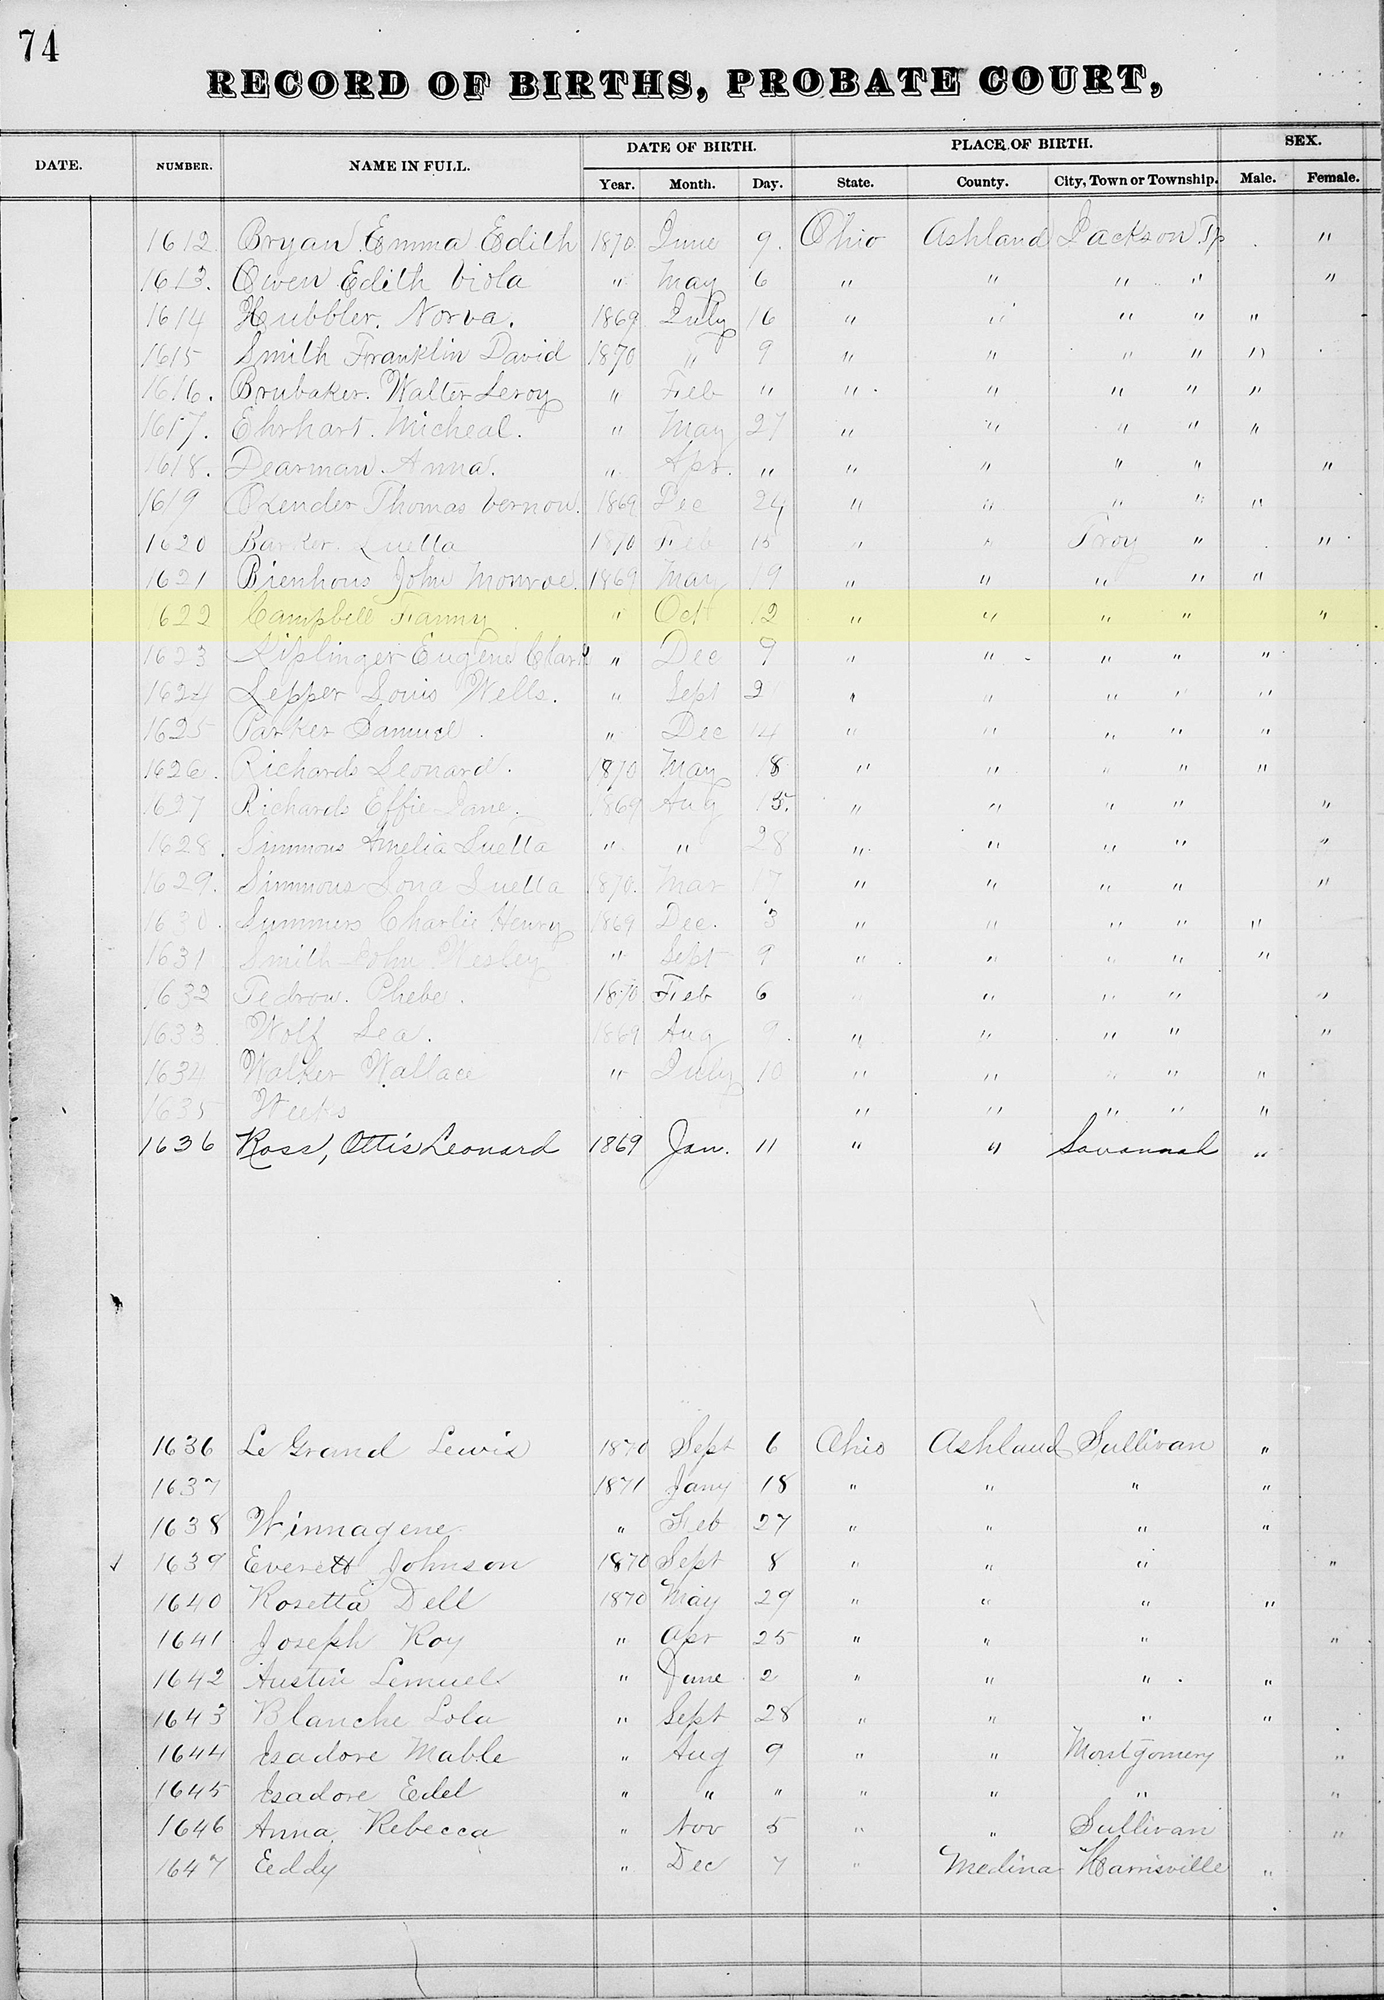 74
RECORD OF BIRTHS, PROBATE COURT,
DATE. NUMBER. NAME IN FULL. DATE OF BIRTH. PLACE OF BIRTH. SEX.
Year. Month. Day. State. County. City, Town or Township. Male. Female.
1612 Bryan Emma Edith 1870. June 9. Ohio Ashland Jackson Tp "
1613. Owen Edith Viola " May 6 " " " " "
1614 Hubbler. Norva. 1869 July 16 " " " " "
1615 Smith Franklin David 1870 " 9 " " " " "
1616. Brubaker. Walter Leroy " Feb " " " " " "
1617. Ehrhart. Micheal. " May 27 " " " " "
1618. Dearman Anna. " Apr. " " " " " "
1619 Thomas Vernon. 1869 Dec 24 " " " " "
1620 Barker. Luella 1870 Feb 15 " " Troy " "
1621 Bienhous John Monroe. 1869 May 19 " " " " "
1622 Campbell Fanny " Oct 12 " " " " "
1623 Kiplinger Eugene Clark " Dec 9 " " " " "
1624 Lepper Louis Wells. " Sept 21 " " " " "
1625 Parker Samuel. " Dec 14 " " " " "
1626. Richards Leonard. 1870 May 18 " " " " "
1627 Richards Effie Jane. 1869 Aug 15. " " " " "
1628. Simmons Amelia Luella " " 28 " " " " "
1629. Simmons Lona Luella 1870. Mar 17 " " " " "
1630. Summers Charlie Henry 1869 Dec. 3 " " " " "
1631 Smith John Wesley " Sept 9 " " " " "
1632 Tedrow. Phebe. 1870 Feb 6 " " " "
1633 Wolf Lea. 1869 Aug 9. " " " " "
1634 Walker Wallace " July 10 " " " " "
1635 Weeks " " " " "
1636 Ross, Ottis Leonard 1869 Jan. 11 " " Savannah "
1636 Le Grand Lewis 1870 Sept 6 Ohio Ashland Sullivan "
1637 1871 Jany 18 " " " "
1638 Winnagene " Feb 27 " " " "
1639 Everett Johnson 1870 Sept 8 " " " "
1640 Rosetta Dell 1870 May 29 " " " "
1641 Joseph Roy " Apr 25 " " " "
1642 Austin Lemuel " June 2 " " " "
1643 Blanche Lola " Sept 28 " " " "
1644 Isadore Mable " Aug 9 " " Montgomery "
1645 Isadore Edel " " " " " " "
1646 Anna Rebecca " Nov 5 " " Sullivan "
1647 Eddy " Dec 7 " Medina Harrisville "